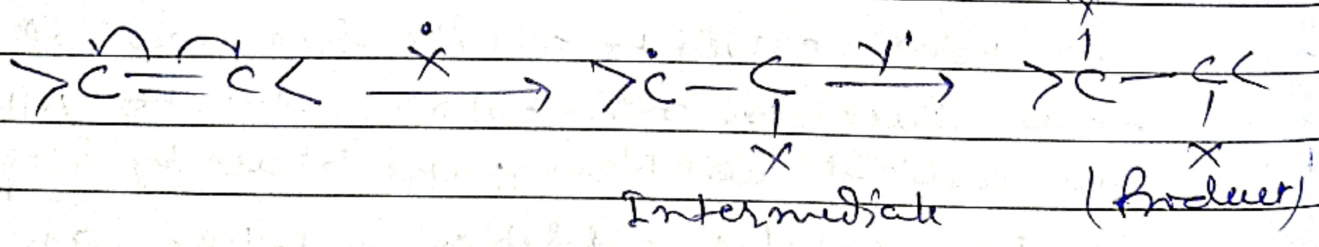 Y
>C=C< Ẋ → >Ċ–C Y• → >C–C<
X X
Intermediate (Product)